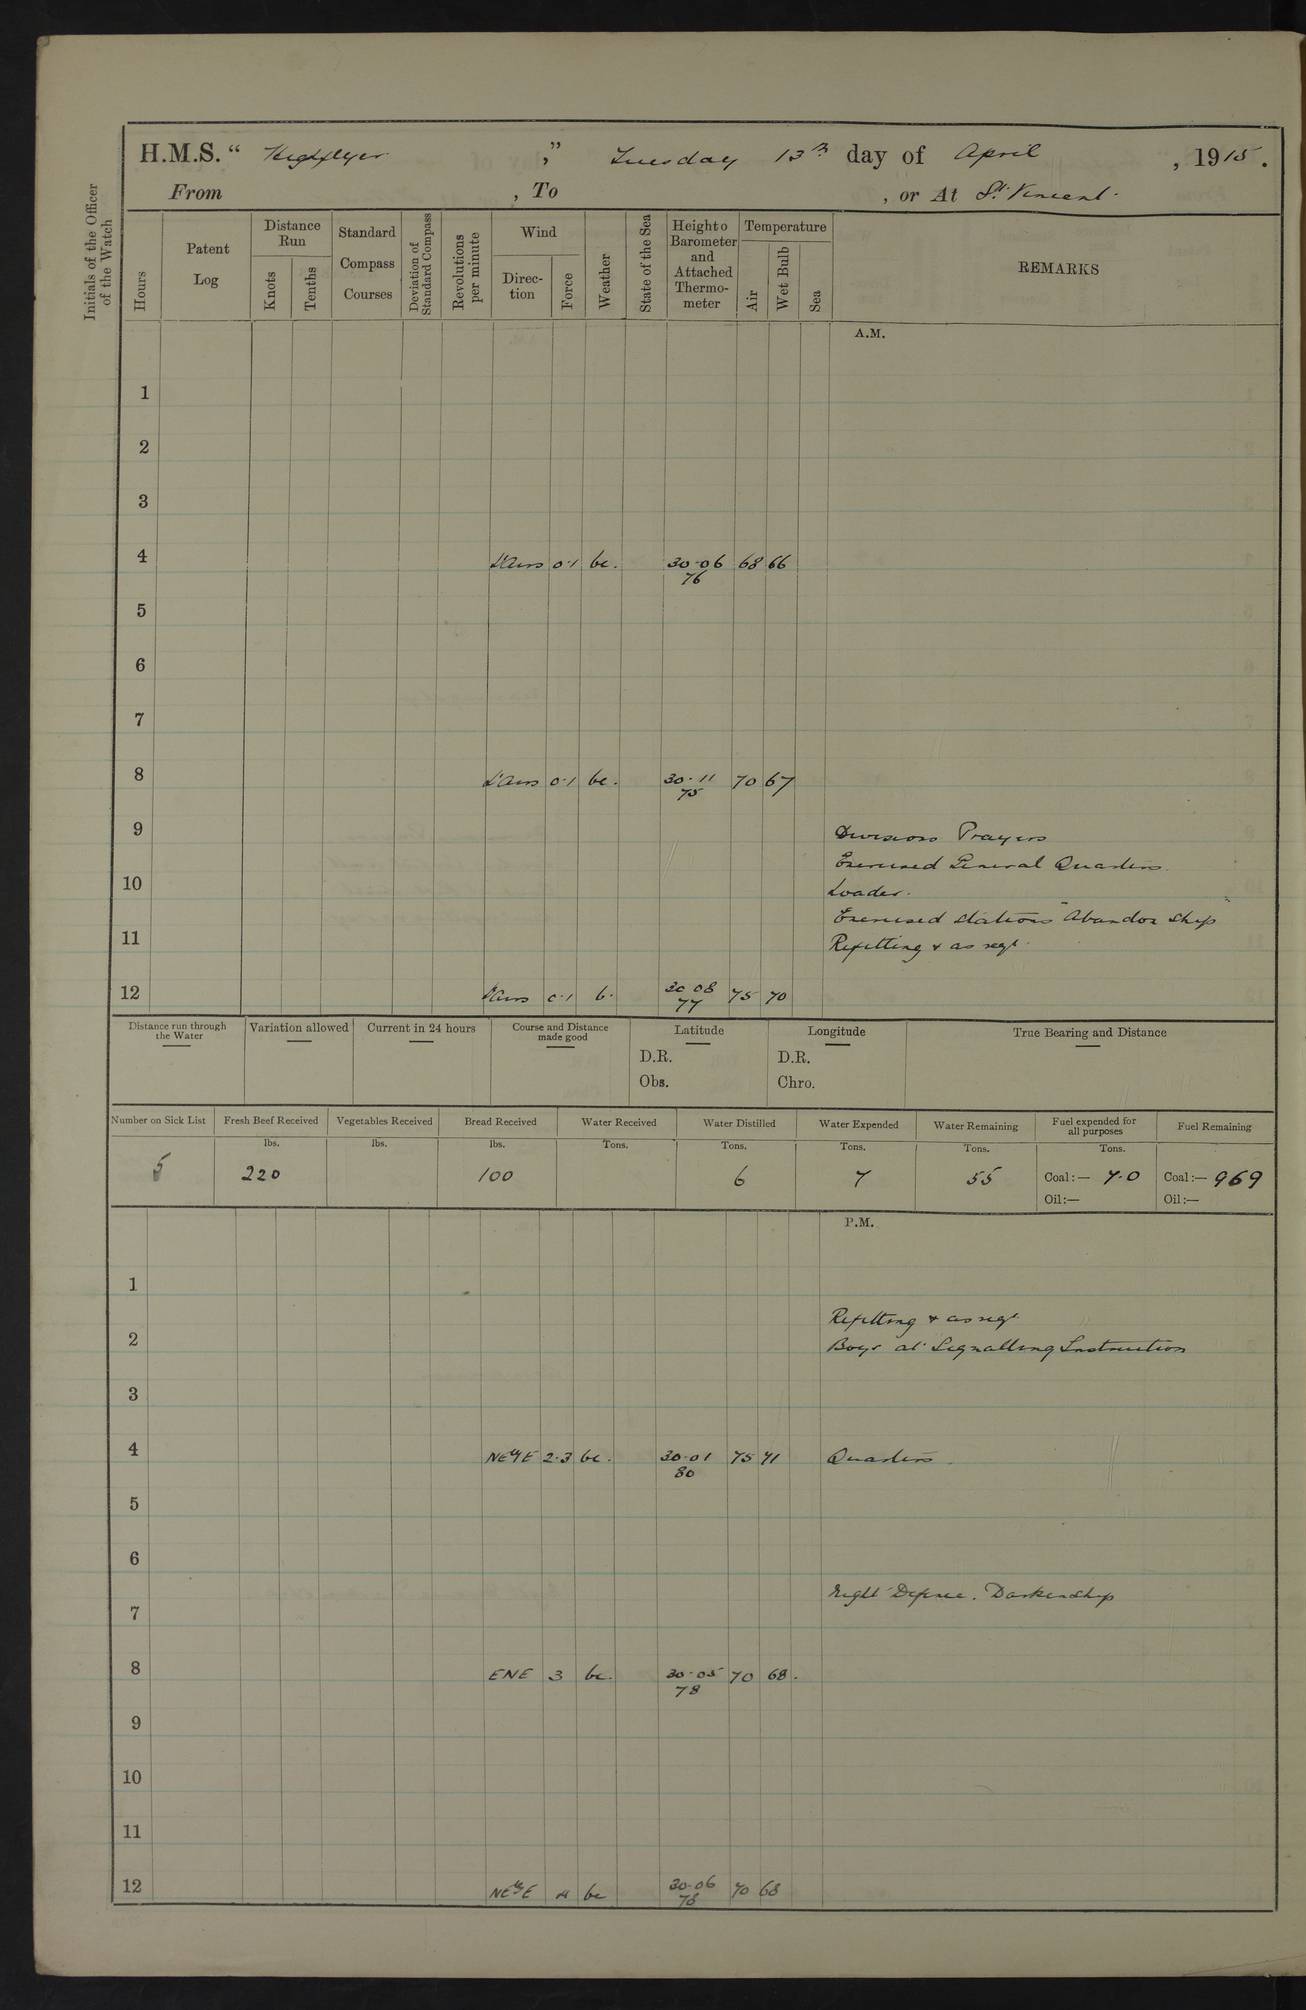 H.M.S. “ Highflyer ,” Tuesday 13th day of April , 1915.
From , To , or At St. Vincent.
Initials of the Officer of the Watch
Hours
Patent Log
Distance Run
Knots
Tenths
Standard Compass Courses
Deviation of Standard Compass
Revolutions per minute
Wind
Direc-tion
Force
Weather
State of the Sea
Height o Barometer and Attached Thermo-meter
Temperature
Air
Wet Bulb
Sea
REMARKS
A.M.
1
2
3
4 L'Airs 0·1 bc. 30·06 68 66
76
5
6
7
8 L'Airs 0·1 bc. 30·11 70 67
75
9 Divisions Prayers
Exercised General Quarters.
10 Loader.
Exercised stations "Abandon Ship"
11 Refitting & as reqt.
12 L'Airs 0·1 b. 30 08 75 70
77
Distance run through the Water
Variation allowed
Current in 24 hours
Course and Distance made good
Latitude
D.R.
Obs.
Longitude
D.R.
Chro.
True Bearing and Distance
Number on Sick List Fresh Beef Received Vegetables Received Bread Received Water Received Water Distilled Water Expended Water Remaining Fuel expended for all purposes Fuel Remaining
lbs. lbs. lbs. Tons. Tons. Tons. Tons. Tons.
5 220 100 6 7 55 Coal:— 7.0 Coal:— 969
Oil:— Oil:—
P.M.
1
Refitting & as reqt.
2 Boys at Signalling Instruction
3
4 NEbyE 2·3 bc. 30·01 75 71 Quarters.
80
5
6
Night Defence. Darken Ship
7
8 ENE 3 bc. 30·05 70 68.
78
9
10
11
12 NEbyE 4 bc 30·06 70 68
78